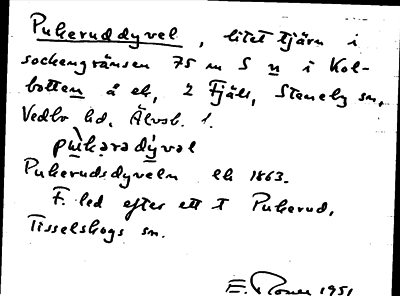 Pukeruddyvel, litet tjärn i
sockengränsen 75 m S n i Kol-
botten å ek, 2 Fjäll, Steneby sn,
Vedbo hd, Älvsb. l.
pùkərədývəl
Pukerudsdyveln ek 1863.
F. led efter ett T Pukerud,
Tisselskogs sn.
E. 1951